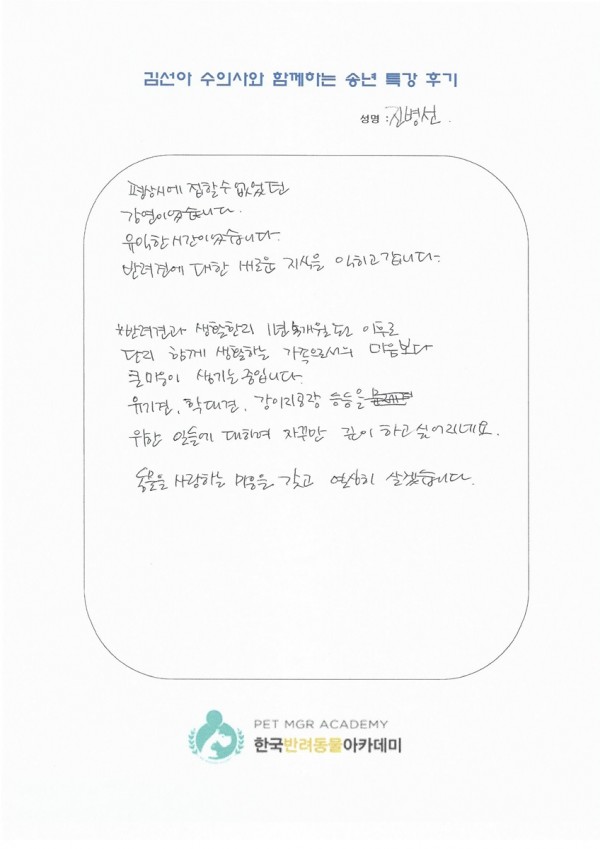 김선아 수의사와 함께하는 송년 특강 후기
성명 : 진병선.
평상시에 접할수 없었던
강연이었습니다.
유익한 시간이었습니다.
반려견에 대한 새로운 지식을 익히고 갑니다.
*반려견과 생활한지 1년 개월 된 이후로
단지 함께 생활하는 가족으로서의 마음보다
큰 마음이 생기는 중입니다.
유기견, 학대견, 강아지공장 등등을
위한 일들에 대하여 자꾸만 깊이 하고 싶어지네요.
동물을 사랑하는 마음을 갖고 열심히 살겠습니다.
PET MGR ACADEMY
한국반려동물아카데미